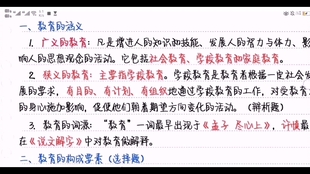 一、教育的涵义
1. 广义的教育：凡是增进人的知识和技能、发展人的智力与体力、影
响人的思想观念的活动。它包括社会教育、学校教育和家庭教育。
2. 狭义的教育：主要指学校教育。学校教育是教育者根据一定社会发
展的要求，有目的、有计划、有组织地通过学校教育的工作，对受教育
的身心施加影响，促使他们朝着期望方向变化的活动。（辨析题）
3. 教育的词源：“教育”一词最早出现于《孟子 尽心上》，许慎最
在《说文解字》中对教育做解释。
二、教育的构成要素（选择题）